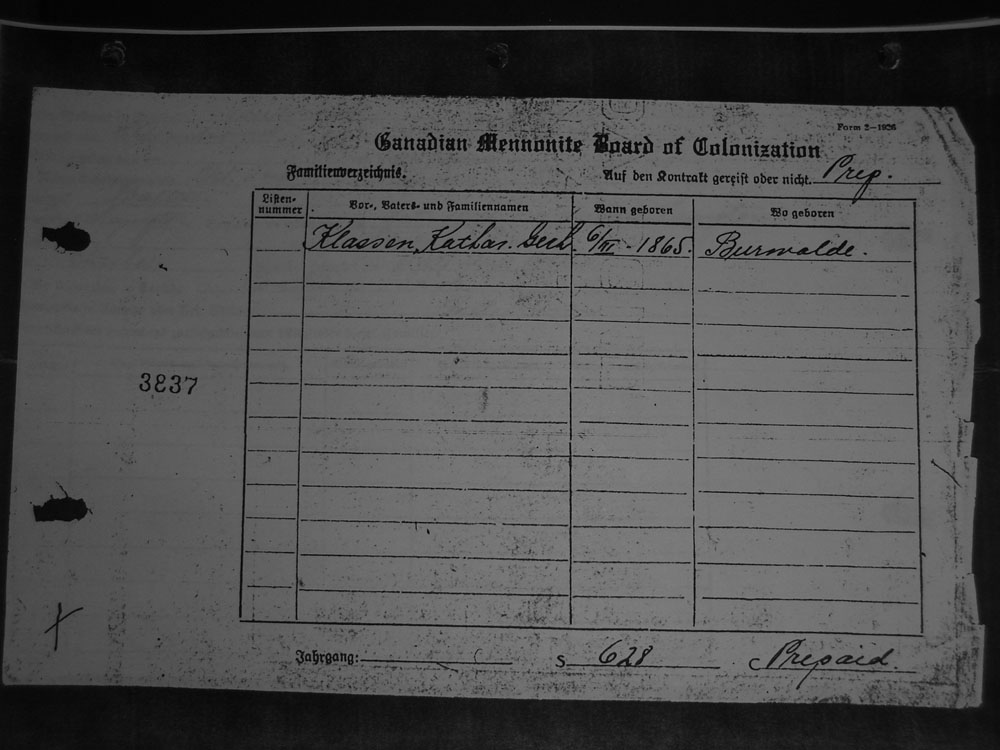 Form 2—1926
Canadian Mennonite Board of Colonization
Familienverzeichnis. Auf den Kontrakt gereist oder nicht. Prep.
Listen-nummer Vor-, Vaters- und Familiennamen Wann geboren Wo geboren
Klassen, Kathar. Gerh. 6/III - 1865. Burwalde.
3837
Jahrgang: S 628 Prepaid.